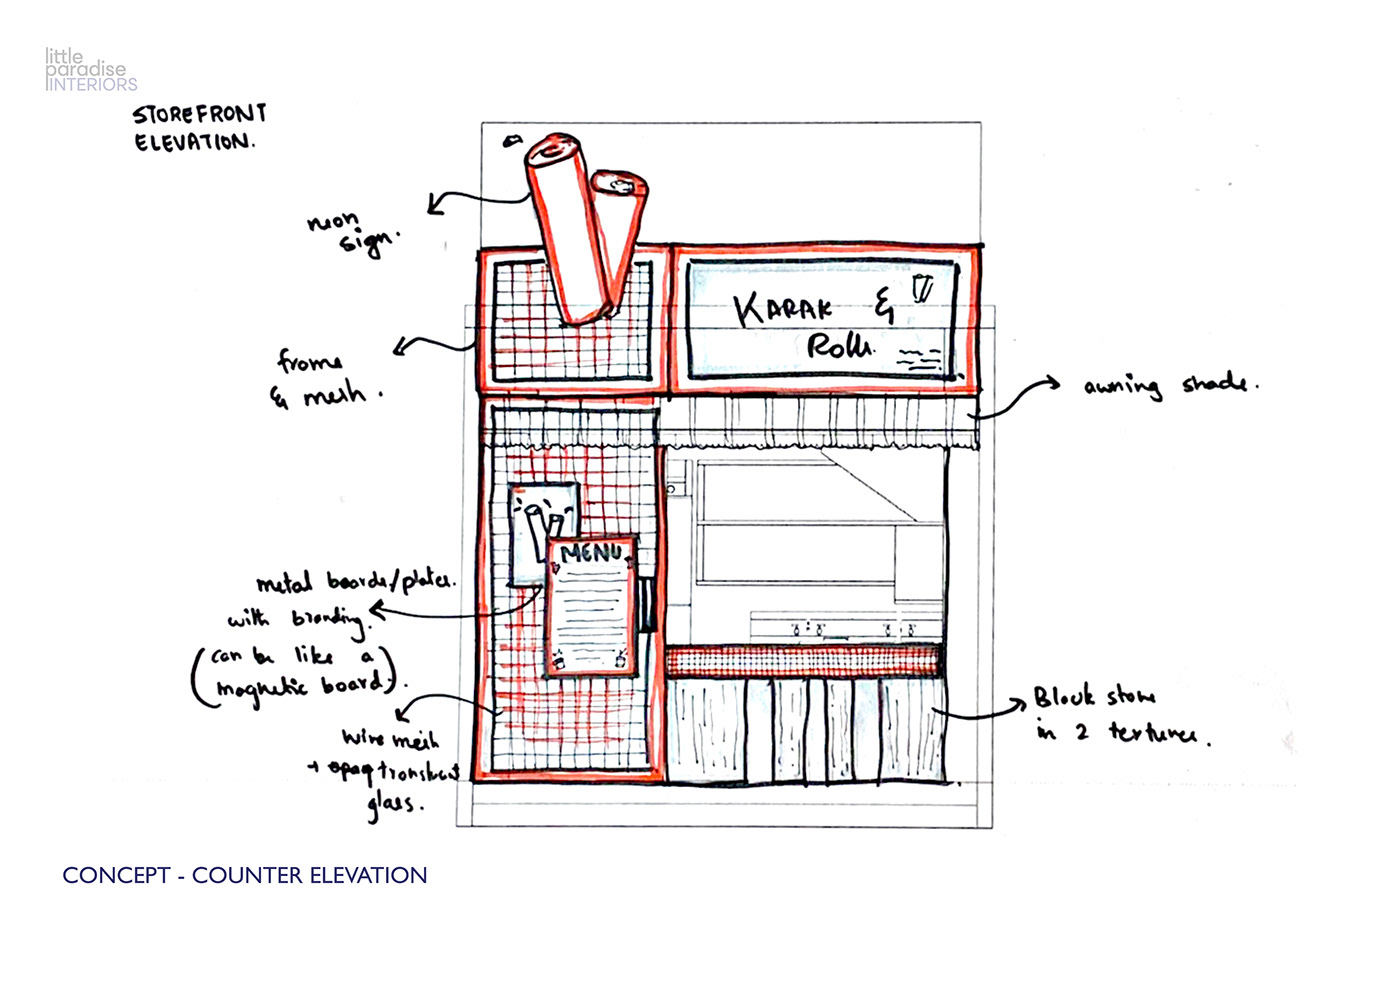 little
paradise
INTERIORS
STOREFRONT
ELEVATION.
neon
sign.
frame
& mesh.
KARAK &
Rolls.
awning shade.
MENU
metal boards/plates.
with branding.
(can be like a
magnetic board).
wire mesh
+ translucent
glass.
Block stone
in 2 textures.
CONCEPT - COUNTER ELEVATION